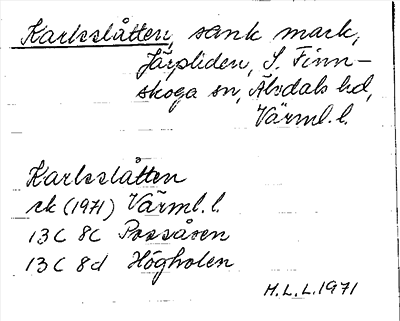 Karlsslåtten, sank mark,
Järpliden, S. Finn-
skoga sn, Älvdals hd,
Värml. l.
Karlsslåtten
ek (1971) Värml. l.
13C 8c Possåsen
13C 8d Högholen
H.L.L. 1971